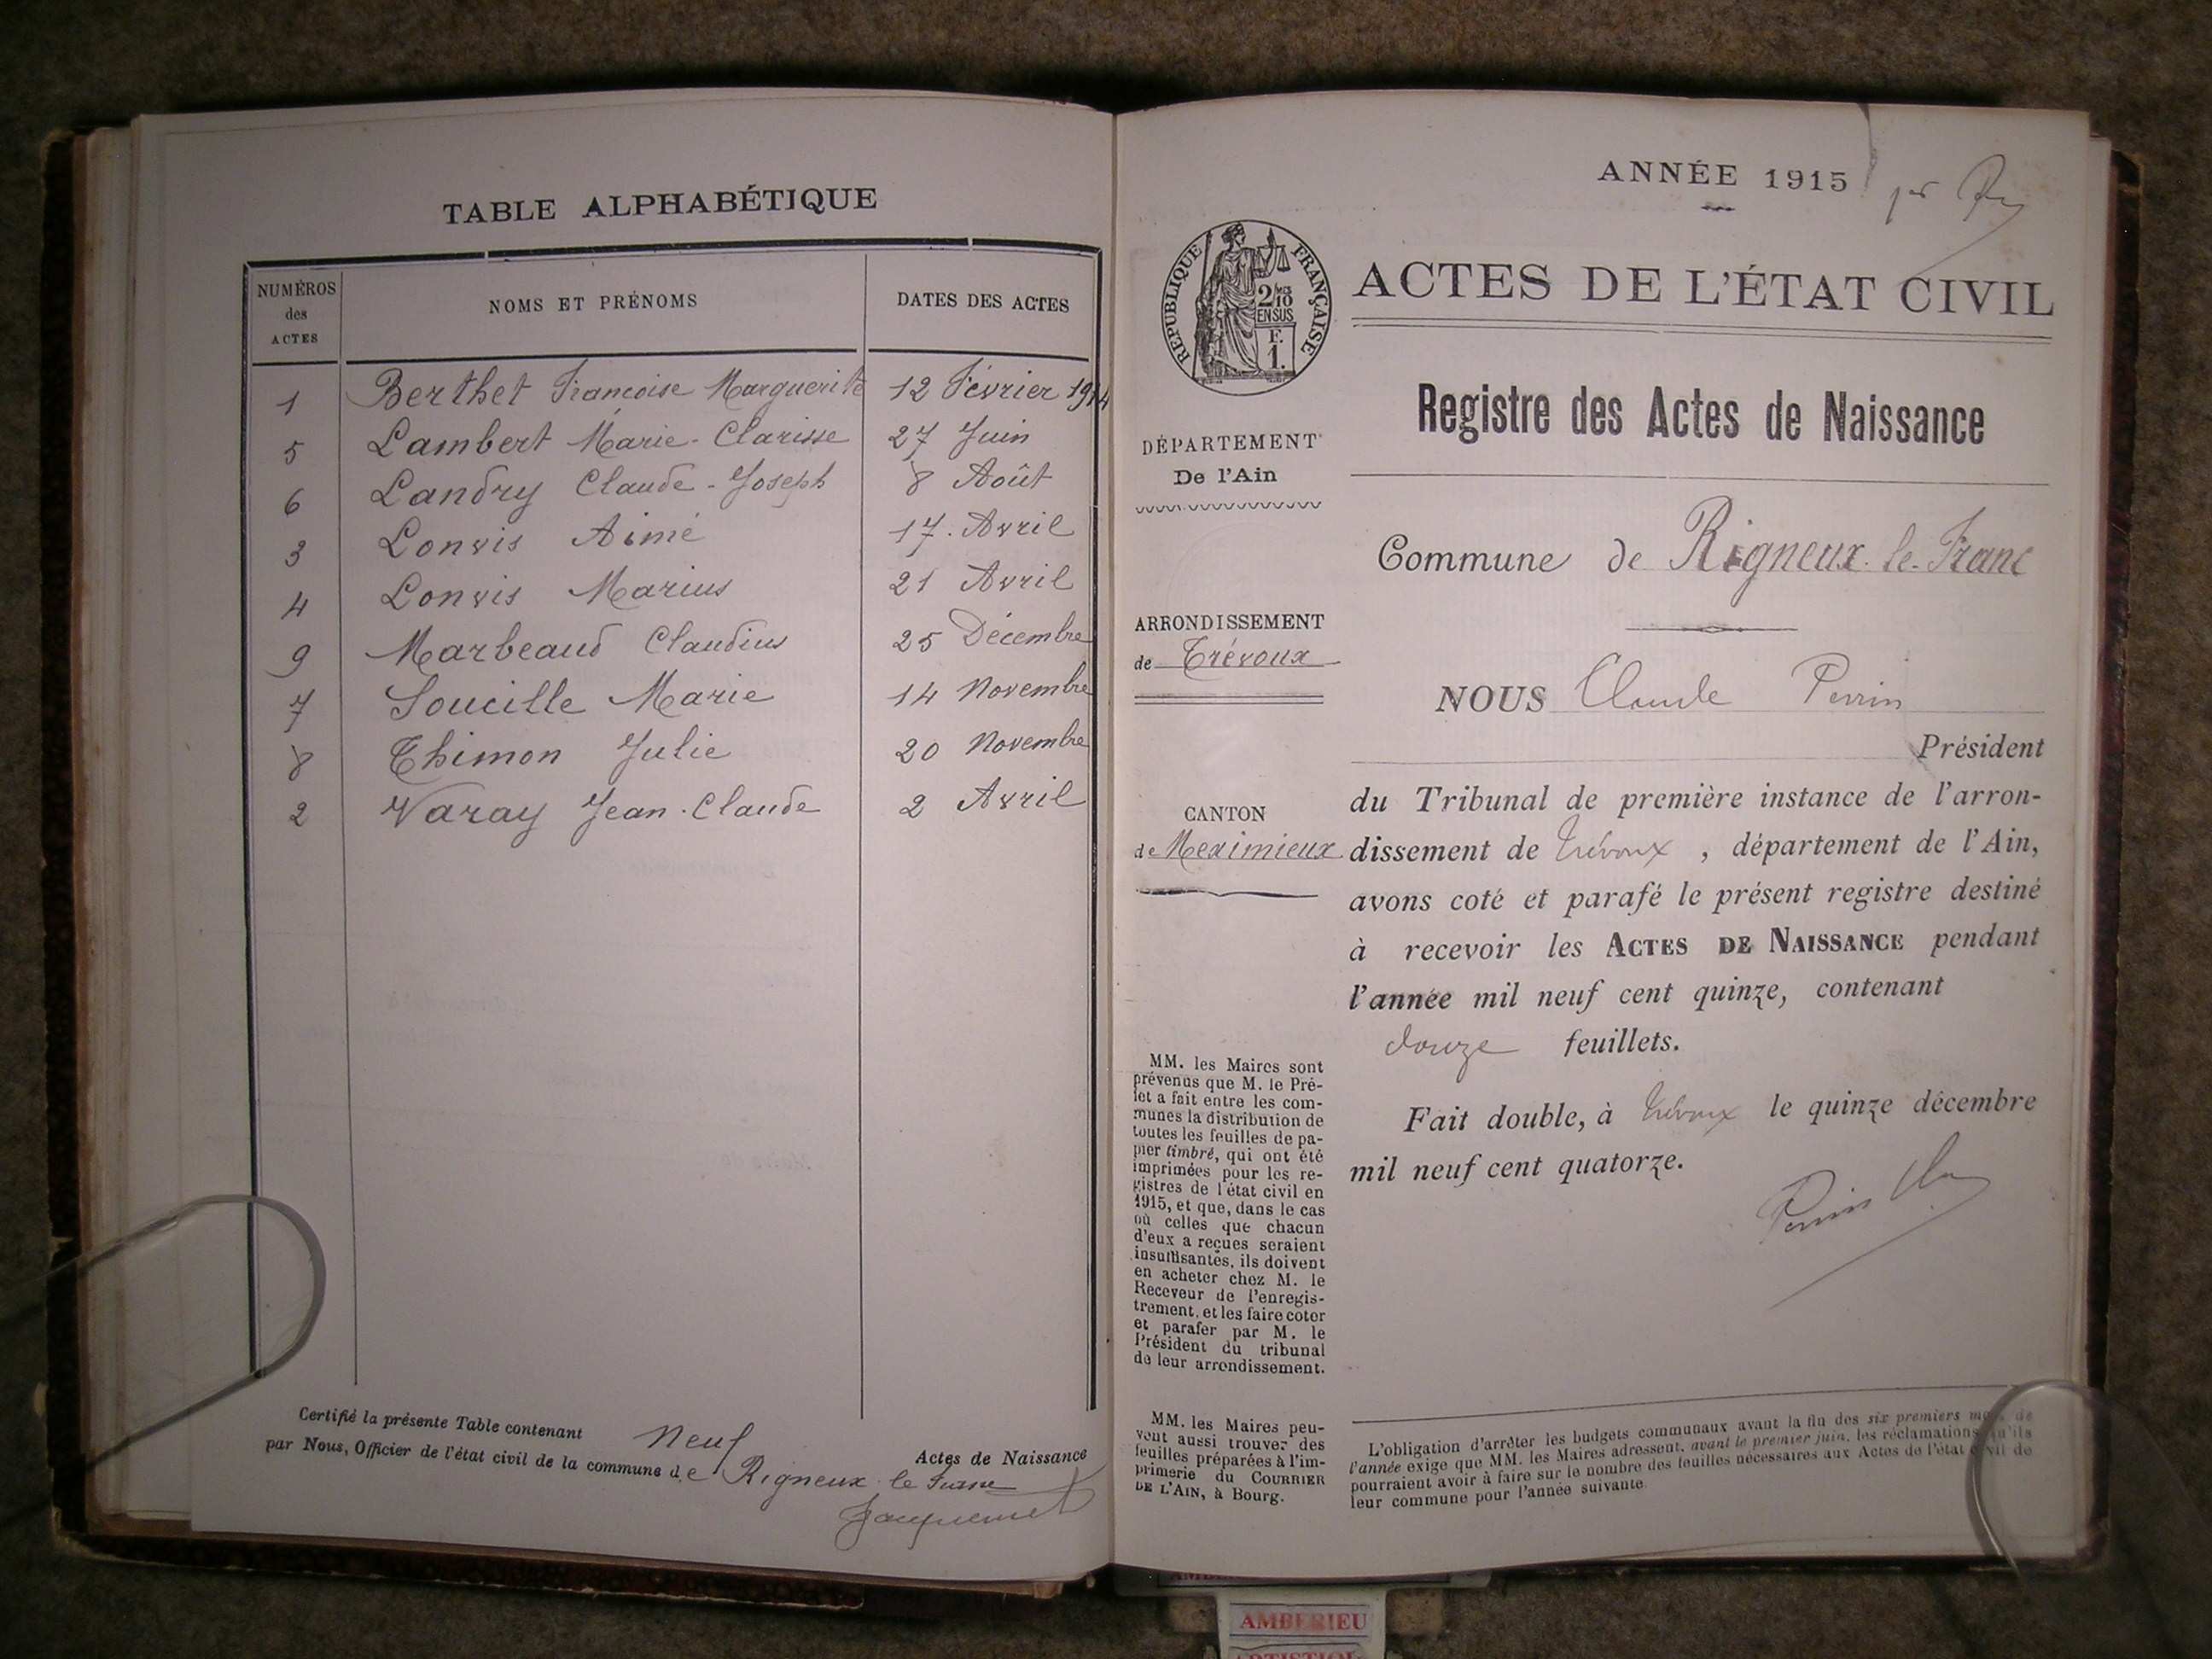 TABLE ALPHABÉTIQUE
NUMÉROS des ACTES
NOMS ET PRÉNOMS
DATES DES ACTES
1 Berthet Françoise Marguerite 12 Février 1914
5 Lambert Marie-Clarisse 27 Juin
6 Landry Claude-Joseph 8 Août
3 Lonvis Aimé 17. Avril
4 Lonvis Marius 21 Avril
9 Marbeaud Claudius 25 Décembre
7 Soucille Marie 14 Novembre
8 Thimon Julie 20 Novembre
2 Varay Jean-Claude 2 Avril
Certifié la présente Table contenant neuf Actes de Naissance
par Nous, Officier de l'état civil de la commune de Rigneux le Franc
Jacquemet
ANNÉE 1915
RÉPUBLIQUE FRANÇAISE
2/10
EN SUS
F.
1.
ACTES DE L'ÉTAT CIVIL
Registre des Actes de Naissance
DÉPARTEMENT
De l'Ain
Commune de Rigneux-le-Franc
ARRONDISSEMENT
de Trévoux
CANTON
de Meximieux
NOUS Claude Perrin
Président
du Tribunal de première instance de l'arron-
dissement de Trévoux, département de l'Ain,
avons coté et parafé le présent registre destiné
à recevoir les ACTES DE NAISSANCE pendant
l'année mil neuf cent quinze, contenant
douze feuillets.
Fait double, à Trévoux le quinze décembre
mil neuf cent quatorze.
Perrin
MM. les Maires sont
prévenus que M. le Pré-
fet a fait entre les com-
munes la distribution de
toutes les feuilles de pa-
pier timbré, qui ont été
imprimées pour les re-
gistres de l'état civil en
1915, et que, dans le cas
où celles que chacun
d'eux a reçues seraient
insuffisantes, ils doivent
en acheter chez M. le
Receveur de l'enregis-
trement, et les faire coter
et parafer par M. le
Président du tribunal
de leur arrondissement.
MM. les Maires peu-
vent aussi trouver des
feuilles préparées à l'im-
primerie du COURRIER
DE L'AIN, à Bourg.
L'obligation d'arrêter les budgets communaux avant la fin des six premiers mois de
l'année exige que MM. les Maires adressent, avant le premier juin, les réclamations qu'ils
pourraient avoir à faire sur le nombre des feuilles nécessaires aux Actes de l'état civil de
leur commune pour l'année suivante.
AMBERIEU